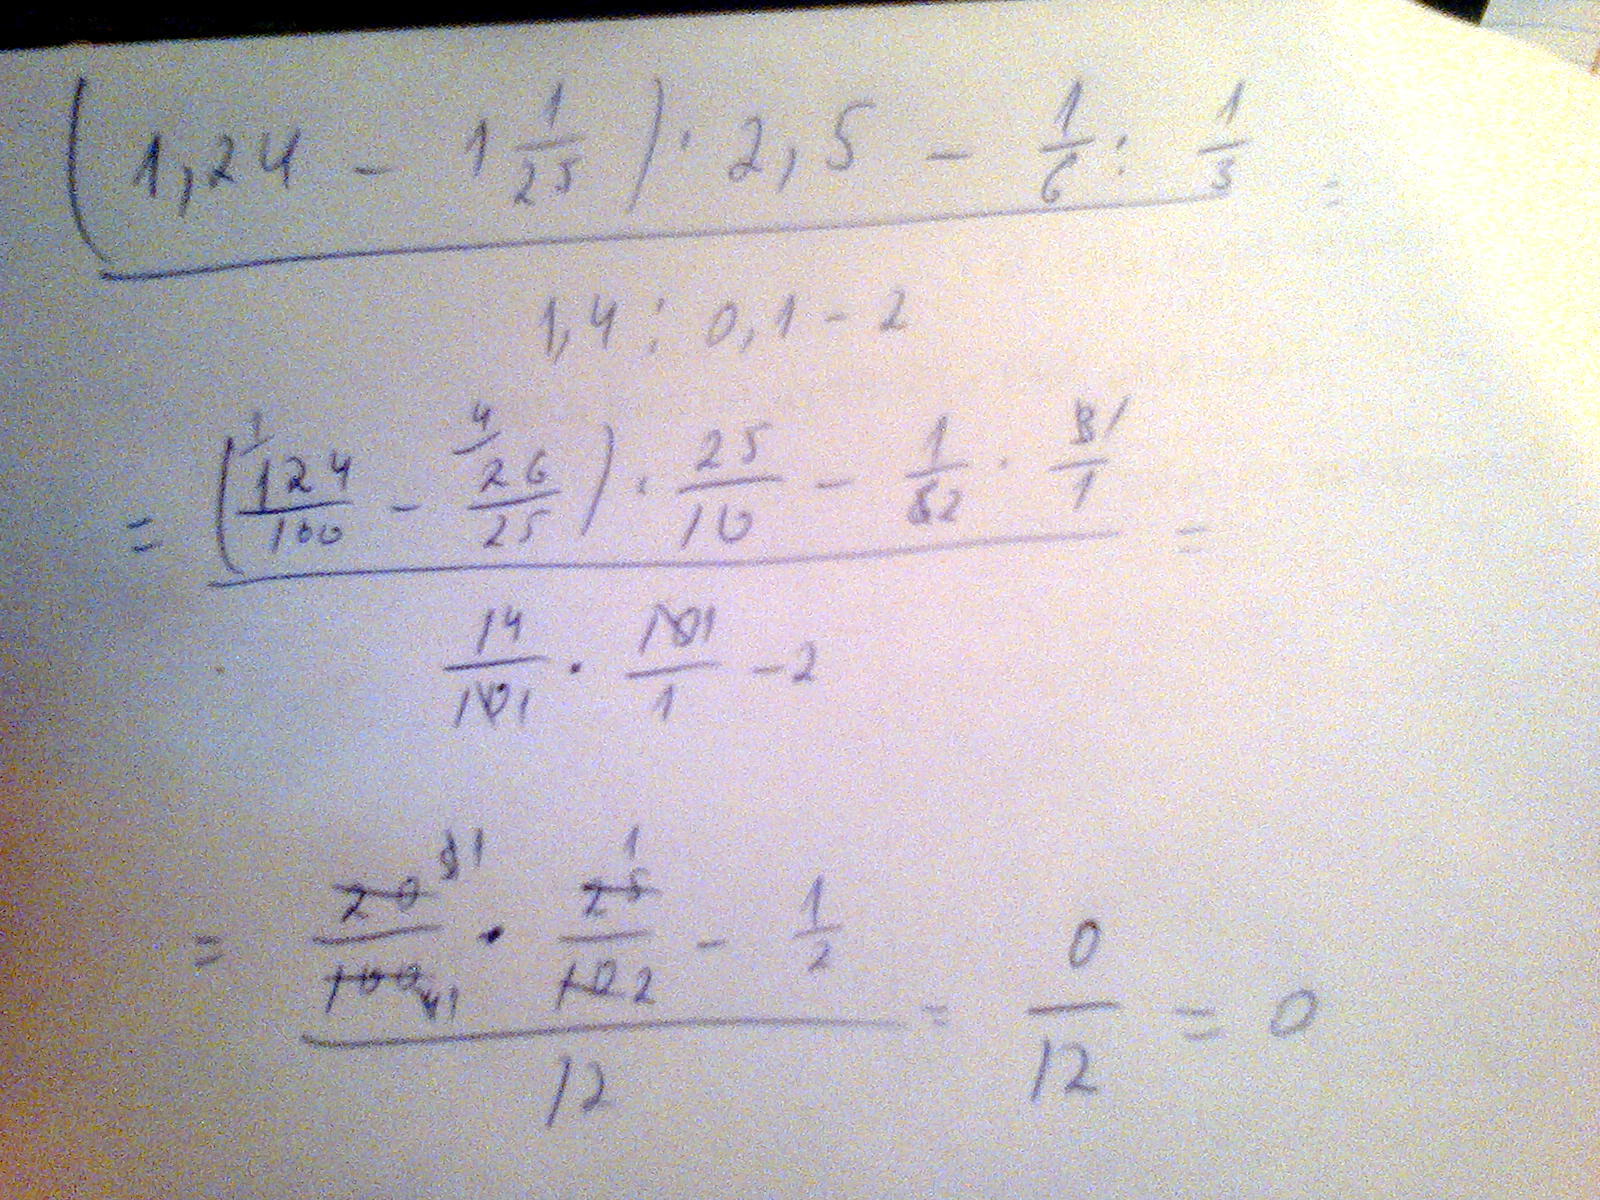 (1,24 - 1 1/25) · 2,5 - 1/6 : 1/3 =
1,4 : 0,1 - 2
= (124/100 - 26/25) · 25/10 - 1/2 · 1/1 =
14/101 · 101/1 - 2
= 20/100 · 25/10 - 1/2 = 0/12 = 0
12